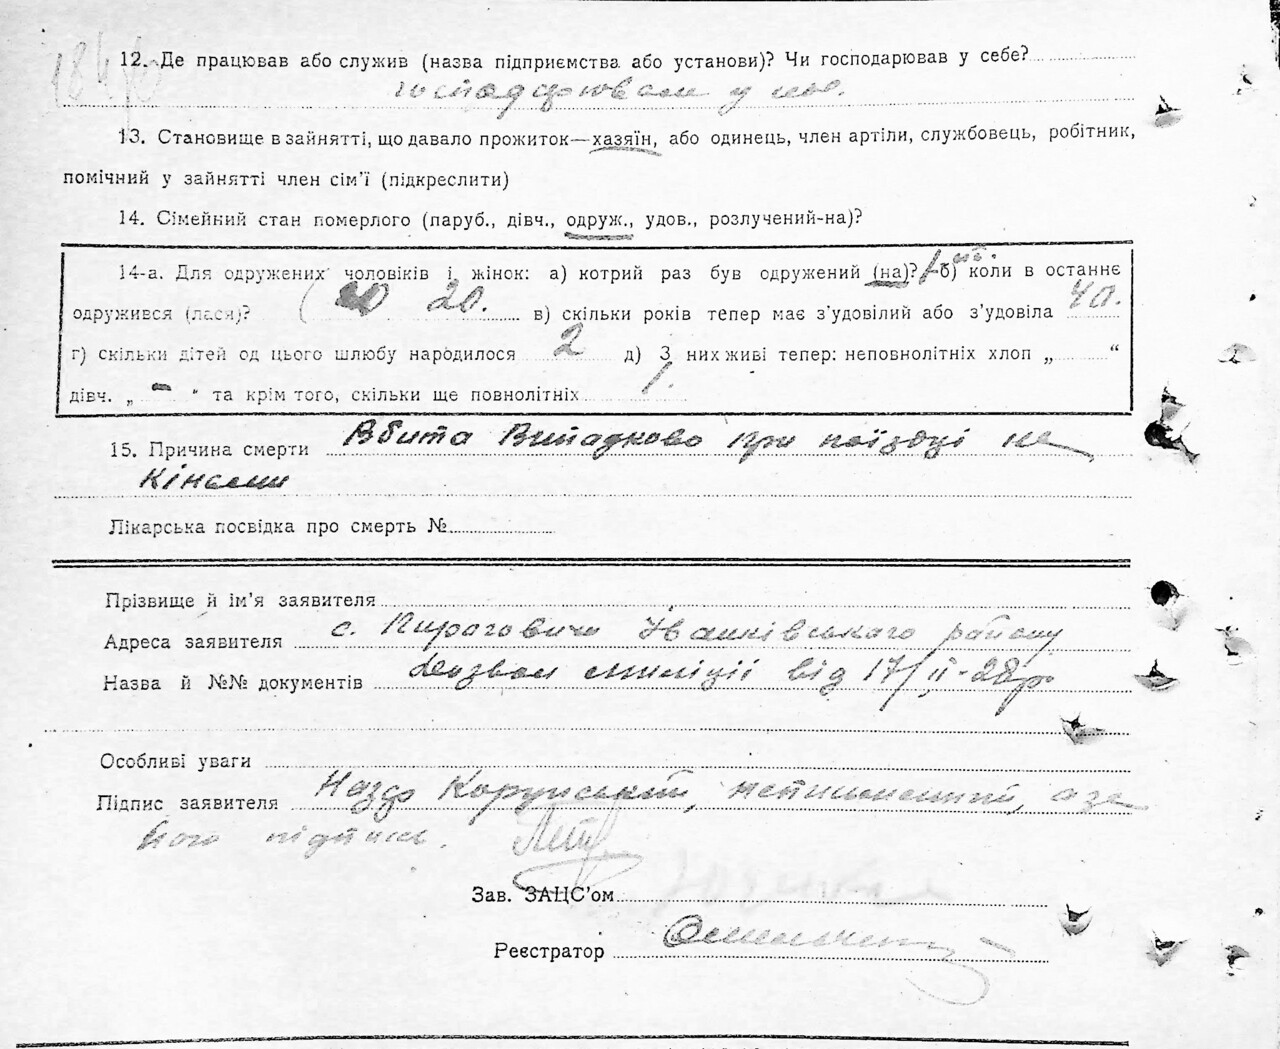 12. Де працював або служив (назва підприємства або установи)? Чи господарював у себе?
господарював у
13. Становище в зайнятті, що давало прожиток—хазяїн, або одинець, член артіли, службовець, робітник,
помічний у зайнятті член сім'ї (підкреслити)
14. Сімейний стан померлого (паруб., дівч., одруж., удов., розлучений-на)?
14-а. Для одружених чоловіків і жінок: а) котрий раз був одружений (на)? 1 б) коли в останнє
одружився (лася)? 20. в) скільки років тепер має з'удовілий або з'удовіла 40.
г) скільки дітей од цього шлюбу народилося 2 д) З них живі тепер: неповнолітніх хлоп „ “
дівч. „ - " та крім того, скільки ще повнолітніх 1.
15. Причина смерти Вбита Випадково при поїздці
Кіньми
Лікарська посвідка про смерть №
Прізвище й ім'я заявителя
Адреса заявителя с. Пироговичи Іванківського району
Назва й №№ документів дозвол миліції від 17/II-28р.
Особливі уваги
Підпис заявителя
його підпись.
Зав. ЗАЦС'ом
Реєстратор